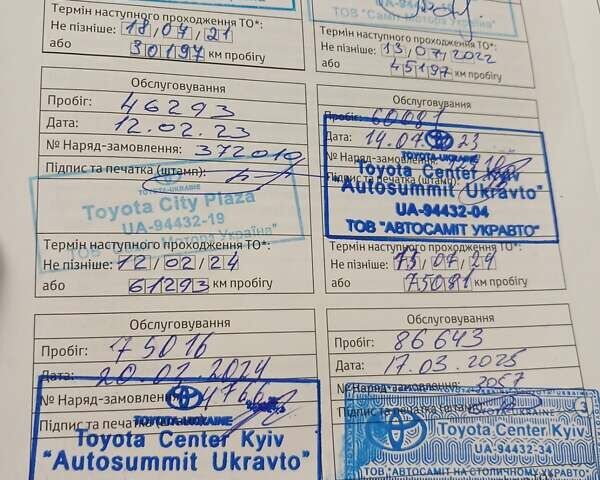 ТОВ "Саміт Мотора Україна"
Термін наступного проходження ТО*:
Не пізніше: 18/07/21
або 30197 км пробігу
Термін наступного проходження ТО*:
Не пізніше: 13/07/2022
або 45197 км пробігу
Обслуговування
Пробіг: 46293
Дата: 12.02.23
№ Наряд-замовлення: 372010
Підпис та печатка (штамп):
TOYOTA-UKRAINE
Toyota City Plaza
UA-94432-19
ТОВ "Саміт Мотора Україна"
Термін наступного проходження ТО*:
Не пізніше: 12/02/24
або 61293 км пробігу
Обслуговування
Пробіг: 60081
Дата: 23
№ Наряд-замовлення:
Підпис та печатка (штамп):
TOYOTA-UKRAINE
Toyota Center Kyiv
"Autosummit Ukravto"
UA-94432-04
ТОВ "АВТОСАМІТ УКРАВТО"
Термін наступного проходження ТО*:
Не пізніше: 13/07/24
або 75081 км пробігу
Обслуговування
Пробіг: 75016
Дата: 2024
№ Наряд-замовлення:
Підпис та печатка
TOYOTA-UKRAINE
Toyota Center Kyiv
"Autosummit Ukravto"
Обслуговування
Пробіг: 86643
Дата: 17.03.2025
№ Наряд-замовлення: 2057
Підпис та печатка (штамп):
3
Toyota Center Kyiv
UA-94432-34
ТОВ "АВТОСАМІТ НА СТОЛИЧНОМУ УКРАВТО"